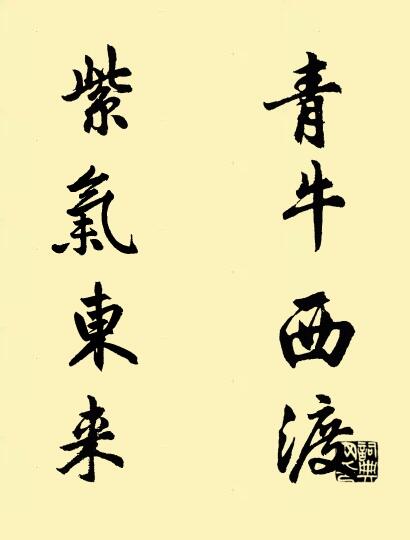 青牛西渡
紫氣東来